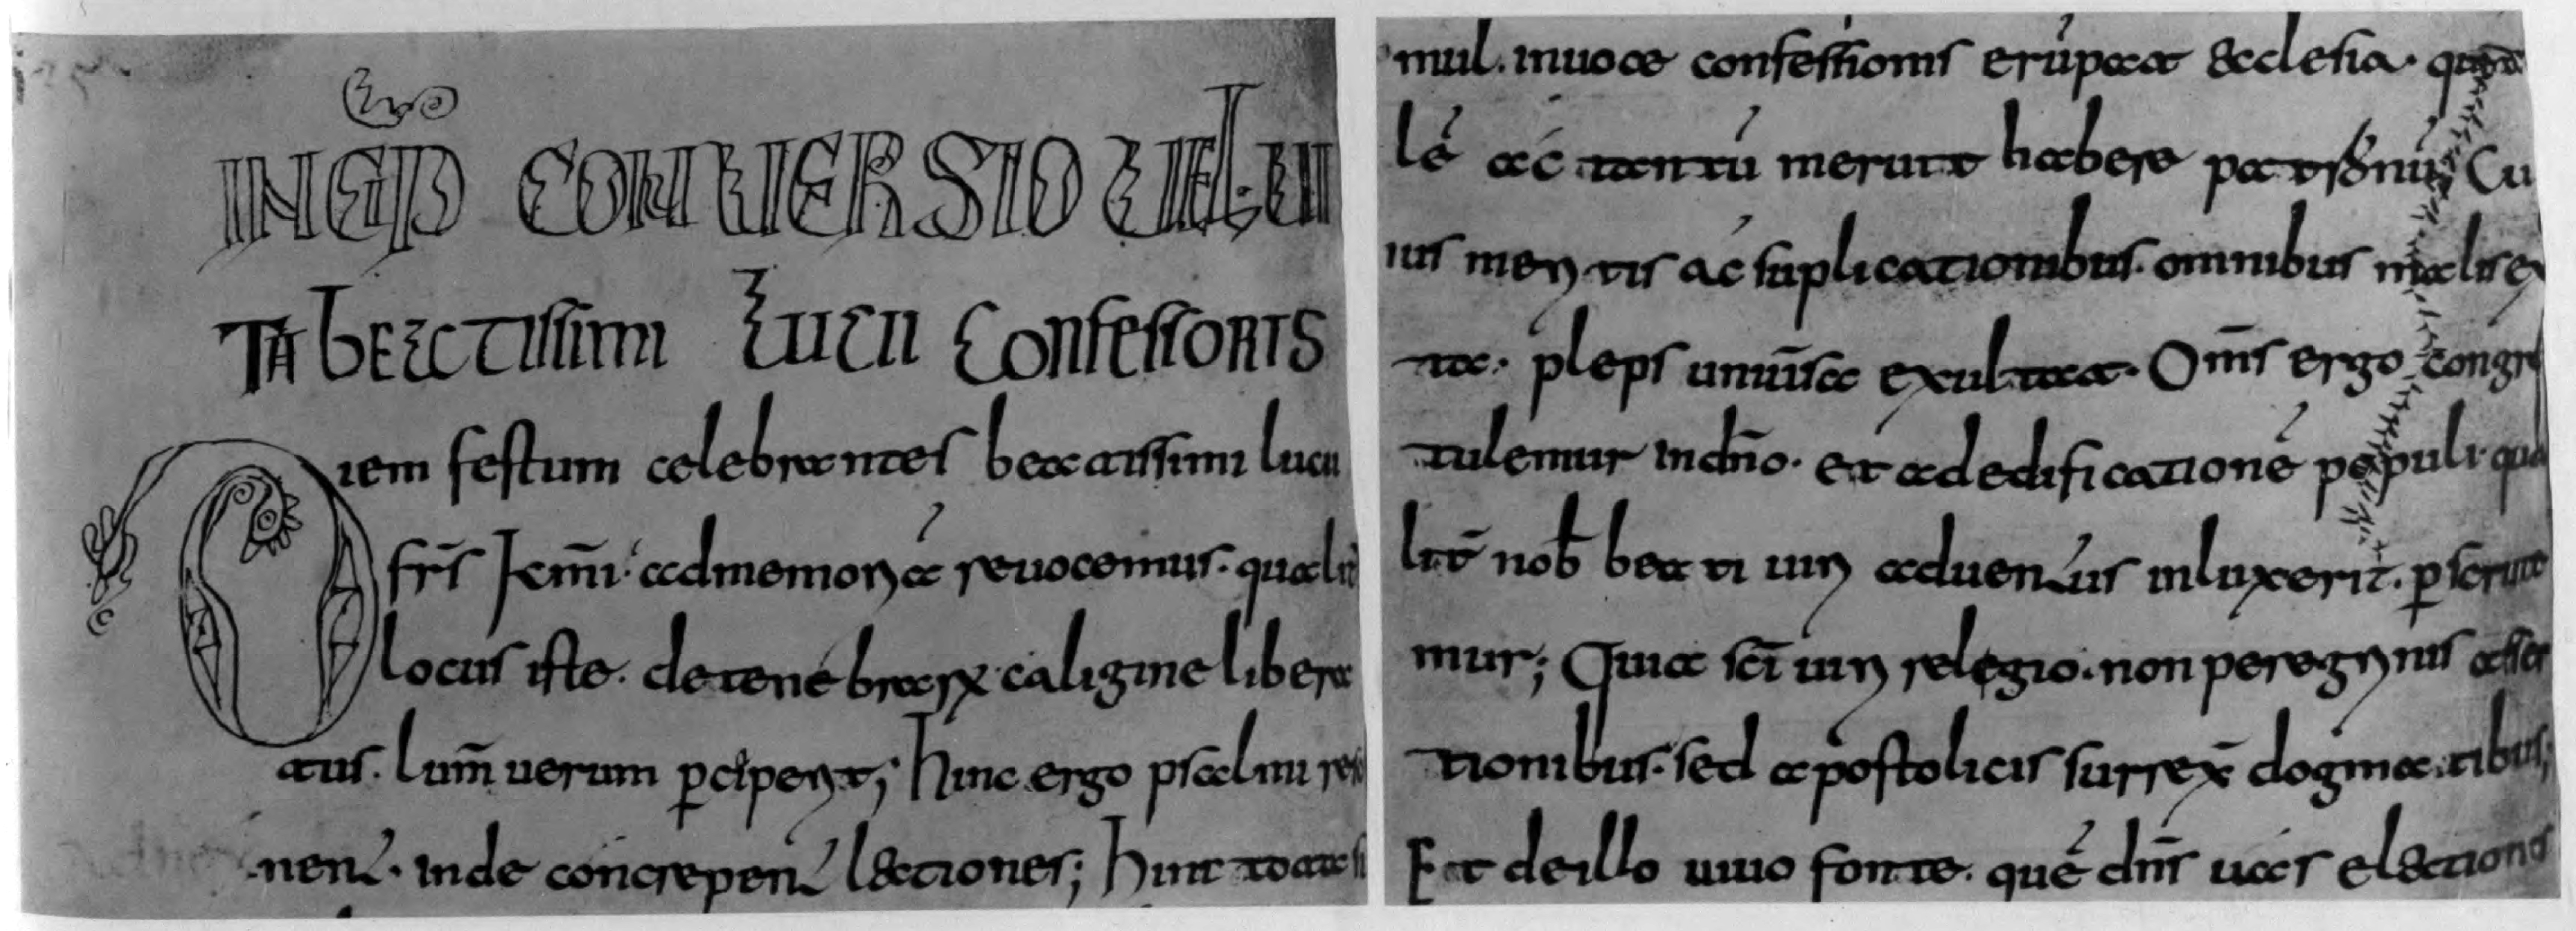 INCIP CONUERSIO UEL UI
TA BEATISSIMI LUCII CONFESSORIS
Diem festum celebrantes beatissimi lucii
frīs kmī. ad memoriā reuocemus. qualit
locus iste. de tenebrarx caligine libera
tus. lum̄ uerum pciperit; hinc ergo psalmi reso
nent. inde concrepent lectiones; hinc tota si
mul. in uoce confessionis erūpat aecclesia.
lē ac tantū meruit habere patronū. Cu
ius meritis ac suplicationibus. omnibus malis ex
uta. pleps uniūsa exultat. Om̄s ergo congra
tulemur in dn̄o. et ad edificationē populi. qua
lit nob beati uiri aduentus inluxerit. pscrute
mur; Quia scī uiri relegio. non peregrinis asser
tionibus. sed apostolicis surrex dogmatibus;
Et de illo uiuo fonte. quē dn̄s uas electionis